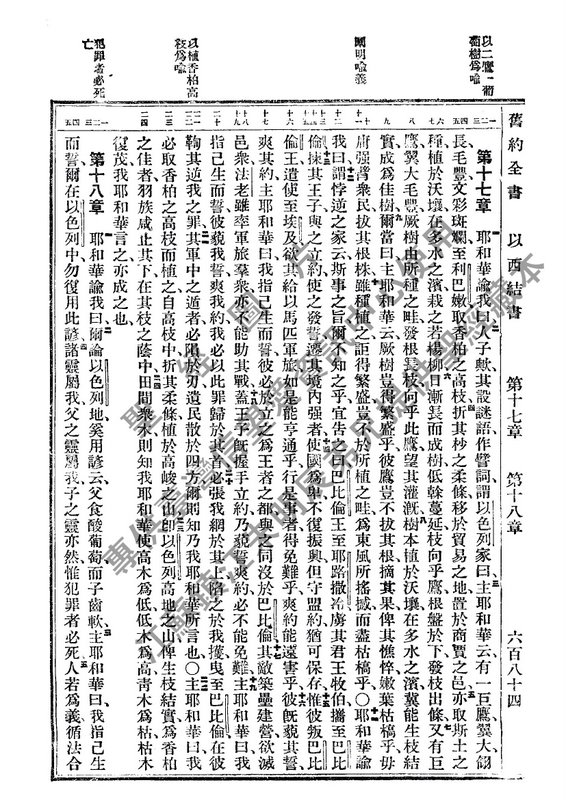 以二鷹一葡
萄樹爲喻
闡明喻義
以植香柏高
枝爲喻
犯罪者必死
亡
舊約全書　以西結書　第十七章　第十八章　六百八十四
第十七章　耶和華諭我曰人子歟其設謎語作譬詞謂以色列家曰主耶和華云有一巨鷹翼大翮
長毛豐文彩斑斕至利巴嫩取香柏之高枝折其杪之柔條移於貿易之地置於商賈之邑亦取斯土之
種植於沃壤在多水之濱栽之若楊柳日漸長而成樹低幹蔓延枝向乎鷹根盤於下發枝出條又有巨
鷹翼大毛豐厥樹由所種之畦發根長枝向乎此鷹望其灌漑樹本植於沃壤在多水之濱冀能生枝結
實成爲佳樹爾當曰主耶和華云厥樹豈得繁盛乎彼鷹豈不拔其根摘其果俾其憔悴嫩葉枯槁乎毋
庸强臂衆民拔其根株雖種植之詎得繁盛豈不於所植之畦爲東風所搖撼而盡枯槁乎〇耶和華諭
我曰謂悖逆之家云斯事之旨爾不知之乎宜吿之曰巴比倫王至耶路撒冷虜其君王牧伯攜至巴比
倫揀其王子與之立約使之發誓遷其境內强者使國爲卑不復振興但守盟約猶可保存惟彼叛巴比
倫王遣使至埃及欲其給以馬匹軍旅如是能亨通乎行是事者得免難乎爽約能遠害乎彼旣藐其誓
爽其約主耶和華曰我指己生而誓彼必於立之爲王者之都與之同沒於巴比倫其敵築壘建營欲滅
邑衆法老雖率軍旅羣衆亦不能助其戰蓋王子旣握手立約乃藐誓爽約必不能免難主耶和華曰我
指己生而誓彼藐我誓爽我約我必以此罪歸於其首必張我網於其上陷之於我擭曳至巴比倫在彼
鞫其逆我之罪其軍中之遁者必隕於刃遺民散於四方爾則知乃我耶和華所言也〇主耶和華曰我
必取香柏之高枝而植之自高枝中折其柔條植於高峻之山卽以色列高地之山俾生枝結實爲香柏
之佳者羽族咸止其下在其枝之蔭中田間衆木則知我耶和華使高木爲低低木爲高靑木爲枯枯木
復茂我耶和華言之亦成之也
第十八章　耶和華諭我曰爾論以色列地奚用諺云父食酸葡萄而子齒軟主耶和華曰我指己生
而誓爾在以色列中勿復用此諺諸靈屬我父之靈屬我子之靈亦然惟犯罪者必死人若爲義循法合